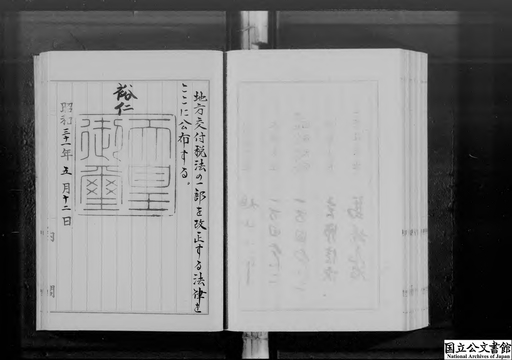 地方交付税法の一部を改正する法律を
ここに公布する。
裕仁
天皇
御璽
昭和三十一年五月十二日
国立公文書館
National Archives of Japan